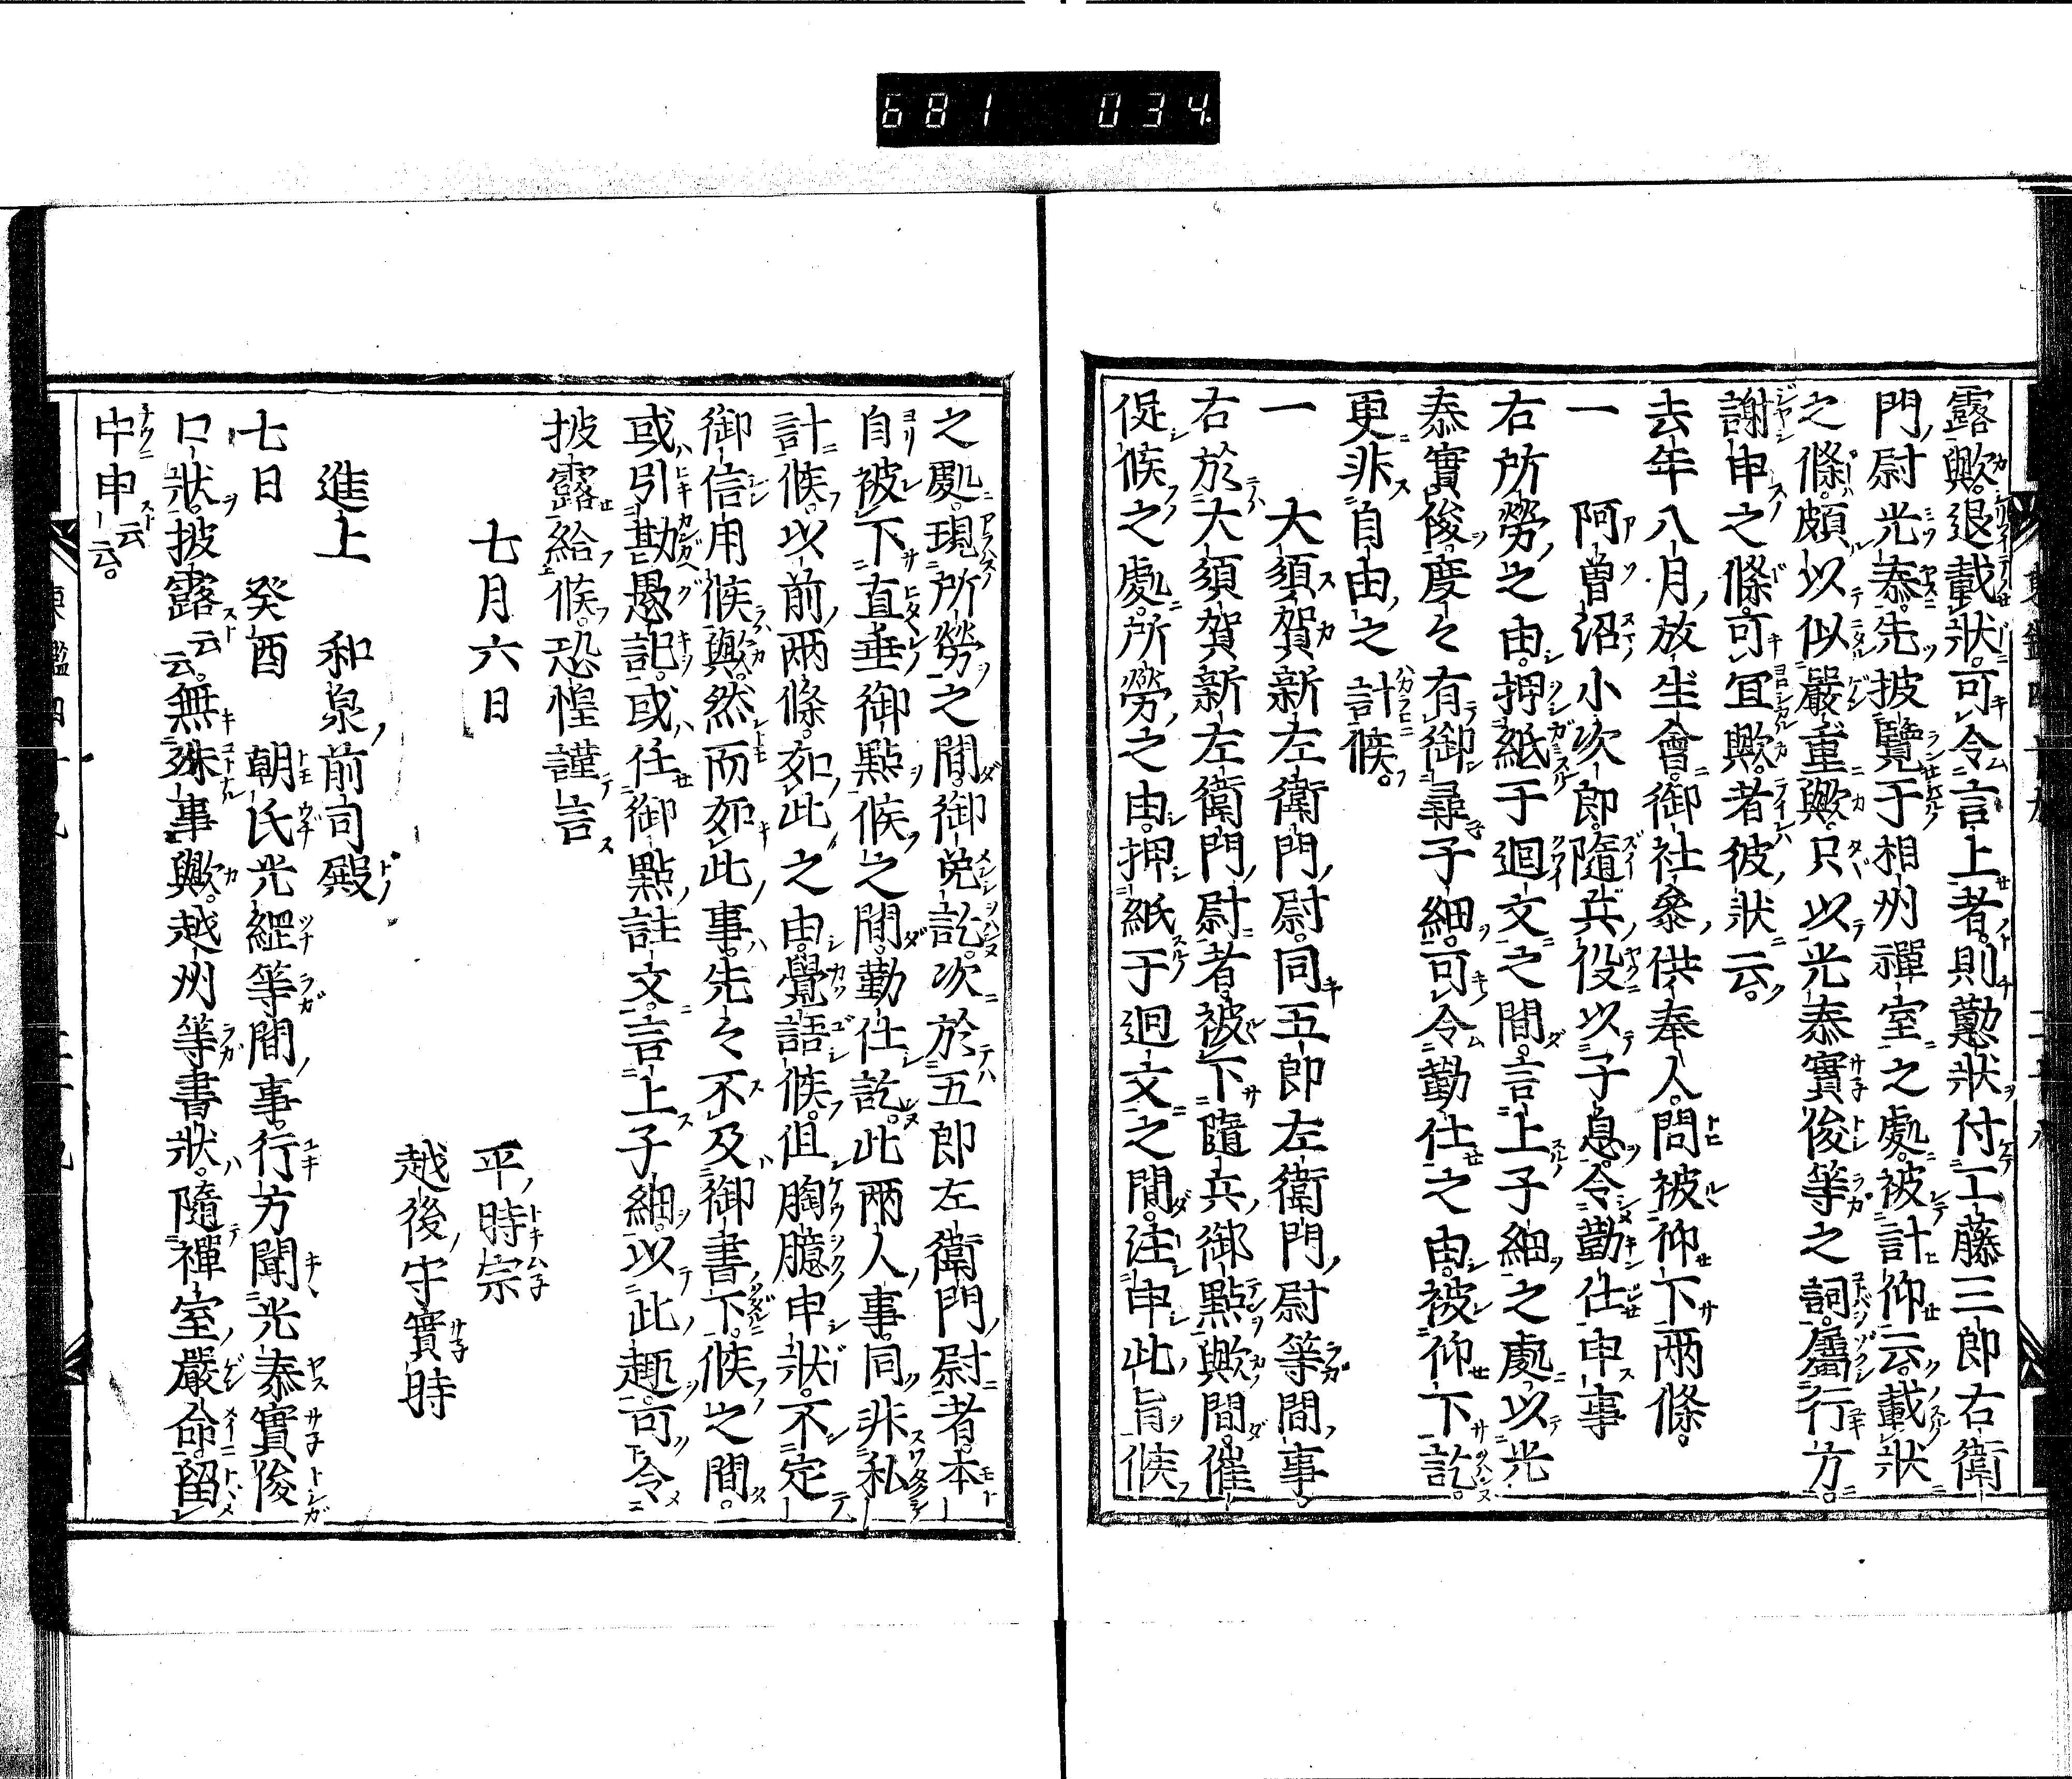 681 034
露歟。退載狀。可令言上者。則懃狀付工藤三郎右衛
門尉光泰。先披覽于相州禪室之處。被計仰云。載狀
之條。頗以似嚴重歟。只以光泰實俊等之詞。屬行方。
謝申之條。可宜歟。者彼狀云。
去年八月放生會。御社叅供奉人。問被仰下兩條。
一 阿曽沼小次郎。隨兵役以子息。令勤仕申事
右所勞之由。押紙于廻文之間。言上子細之處。以光
泰實俊。度々有御尋子細。可令勤仕之由。被仰下訖。
更非自由之計候。
一 大須賀新左衛門尉。同五郎左衛門尉等間事。
右於大須賀新左衛門尉者。被下隨兵御點歟間。催
促候之處。所勞之由。押紙于廻文之間。注申此旨候
之處。現所勞之間。御免訖。次於五郎左衛門尉者。本
自被下直垂御點候之間。勤仕訖。此兩人事。同非私
計候。以前兩條。如此之由。覺語候。但胸臆申狀。不定
御信用候歟。然而如此事。先々不及御書下。候之間。
或引勘愚記。或任御點註文。言上子細。以此趣。可令
披露給候。恐惶謹言
七月六日 平時宗
越後守實時
進上 和泉前司殿
七日 癸酉 朝氏光綱等間事。行方聞光泰實俊
口狀。披露云云。無殊事歟。越州等書狀。隨禪室嚴命。留
中申云云。